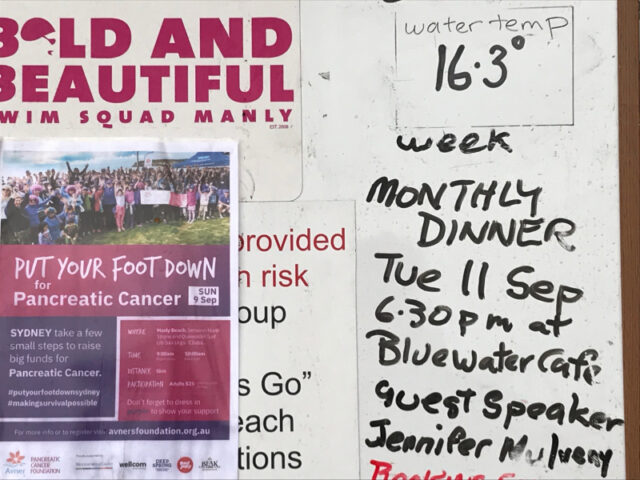 BOLD AND
BEAUTIFUL
WIM SQUAD MANLY
EST. 2008
water temp
16.3°
week
MONTHLY
DINNER
Tue 11 Sep
6.30pm at
Bluewater Cafe
Guest Speaker
Jennifer
provided
risk
oup
s Go”
each
tions
PUT YOUR FOOT DOWN
for
Pancreatic Cancer
SUN
9 Sep
SYDNEY take a few
small steps to raise
big funds for
Pancreatic Cancer.
#putyourfootdownsydney
#makingsurvivalpossible
WHERE
Manly Beach,
TIME
DISTANCE
PARTICIPATION Adults $25
Don't forget to dress in
to show your support
For more info or to register visit avnersfoundation.org.au
Avner
PANCREATIC
CANCER
FOUNDATION
wellcom
DEEP
SPRING
PEAK